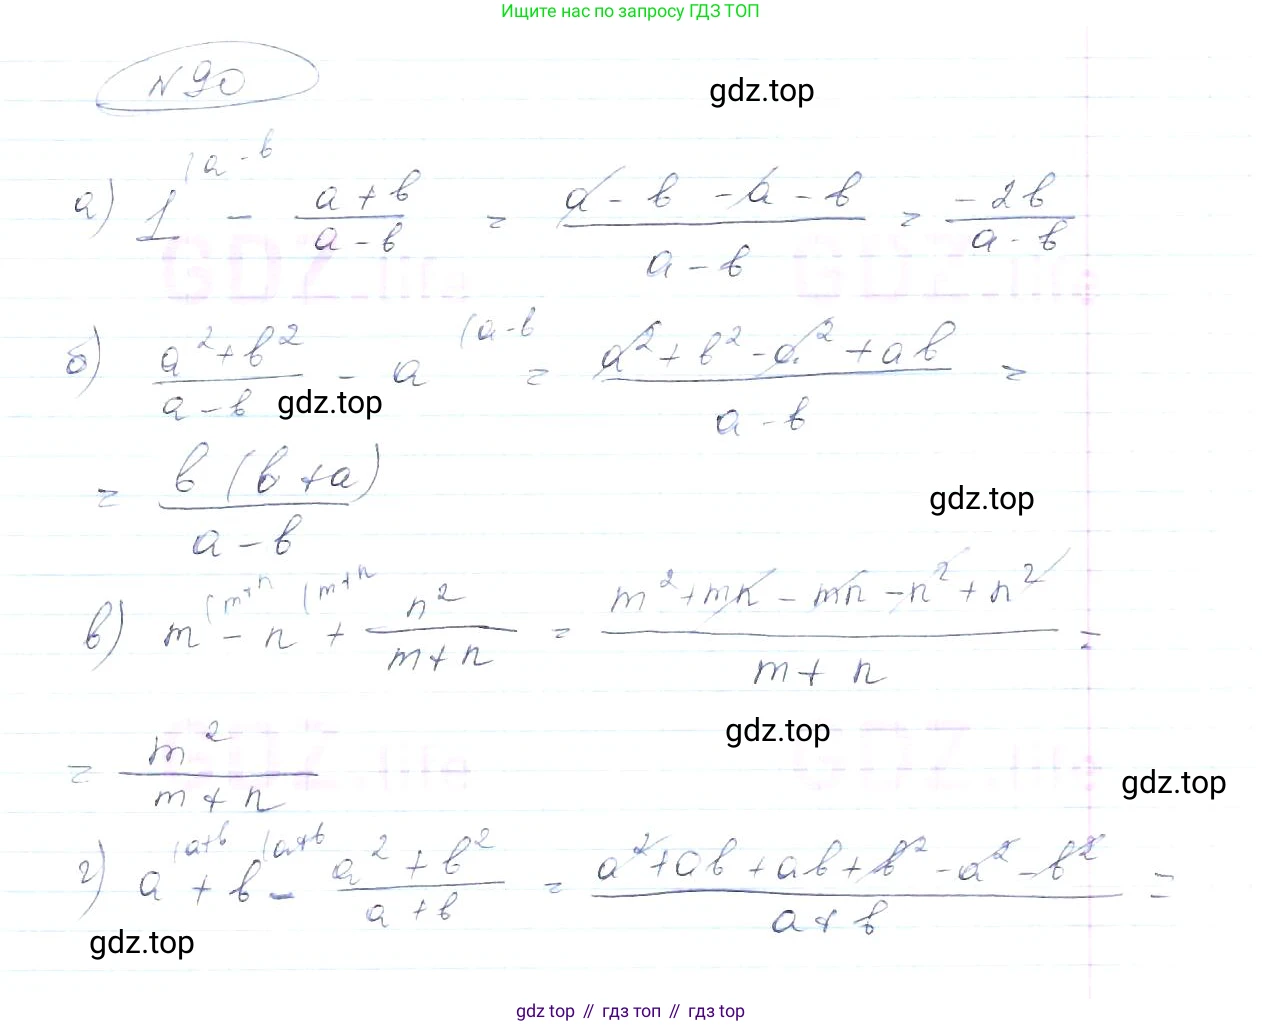 Ищите нас по запросу ГДЗ ТОП
N 90
gdz.top
а) 1 (a-b - (a+b)/(a-b) = (a - b - a - b)/(a-b) = (-2b)/(a-b)
б) (a²+b²)/(a-b) - a (a-b = (a²+b²-a²+ab)/(a-b) =
gdz.top
= (b(b+a))/(a-b)
gdz.top
в) m (m+n - n (m+n + n²/(m+n) = (m²+mn-mn-n²+n²)/(m+n) =
= m²/(m+n)
gdz.top
gdz.top
г) a (a+b + b (a+b - (a²+b²)/(a+b) = (a²+ab+ab+b²-a²-b²)/(a+b) =
gdz.top
gdz top // гдз топ // gdz top